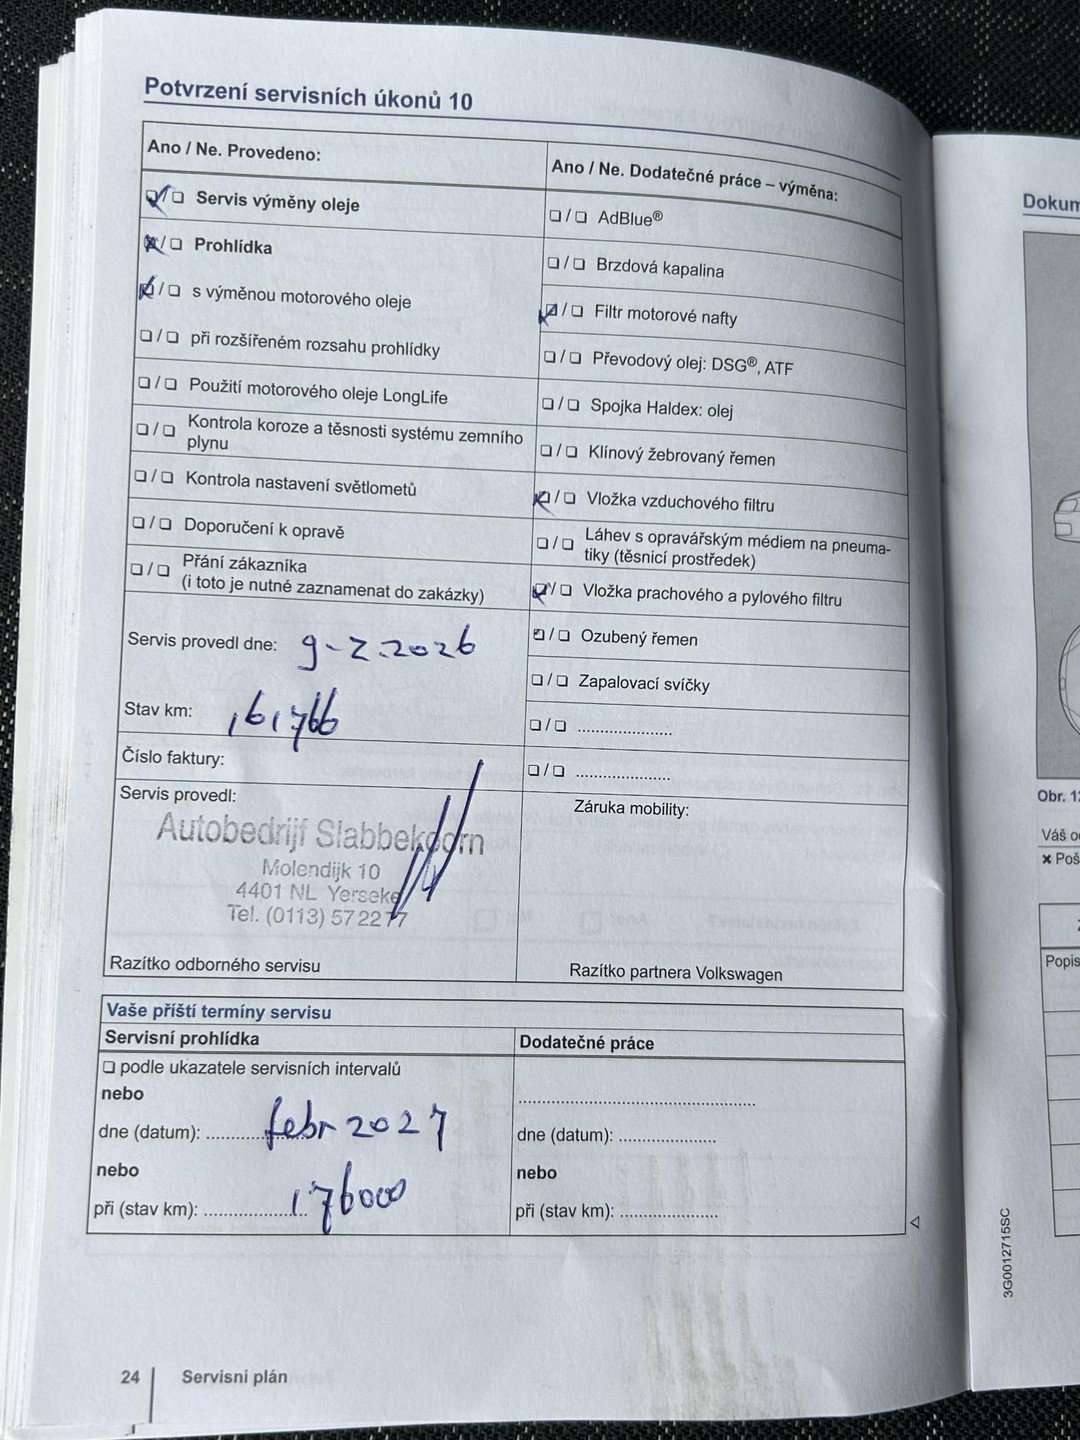 Potvrzení servisních úkonů 10
Ano / Ne. Provedeno:
❏ / ❏ Servis výměny oleje
❏ / ❏ Prohlídka
❏ / ❏ s výměnou motorového oleje
❏ / ❏ při rozšířeném rozsahu prohlídky
❏ / ❏ Použití motorového oleje LongLife
❏ / ❏ Kontrola koroze a těsnosti systému zemního
plynu
❏ / ❏ Kontrola nastavení světlometů
❏ / ❏ Doporučení k opravě
❏ / ❏ Přání zákazníka
(i toto je nutné zaznamenat do zakázky)
Servis provedl dne: 9-2.2026
Stav km: 161766
Číslo faktury:
Servis provedl:
Autobedrijf Slabbekoorn
Molendijk 10
4401 NL Yerseke
Tel. (0113) 57 22 77
Razítko odborného servisu
Ano / Ne. Dodatečné práce – výměna:
❏ / ❏ AdBlue®
❏ / ❏ Brzdová kapalina
❏ / ❏ Filtr motorové nafty
❏ / ❏ Převodový olej: DSG®, ATF
❏ / ❏ Spojka Haldex: olej
❏ / ❏ Klínový žebrovaný řemen
❏ / ❏ Vložka vzduchového filtru
❏ / ❏ Láhev s opravářským médiem na pneuma-
tiky (těsnicí prostředek)
❏ / ❏ Vložka prachového a pylového filtru
❏ / ❏ Ozubený řemen
❏ / ❏ Zapalovací svíčky
❏ / ❏ .....................
❏ / ❏ .....................
Záruka mobility:
Razítko partnera Volkswagen
Vaše příští termíny servisu
Servisní prohlídka
❏ podle ukazatele servisních intervalů
nebo
dne (datum): febr 2027
nebo
při (stav km): 176000
Dodatečné práce
.....................
dne (datum): .....................
nebo
při (stav km): .....................
24 Servisní plán
Dokum
Obr. 1
Váš o
✖ Poš
Popis
3G0012715SC